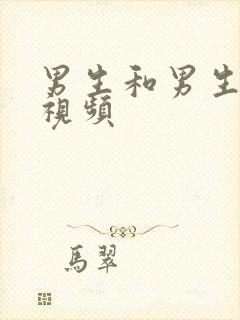 男生和男生
視頻
馬翠